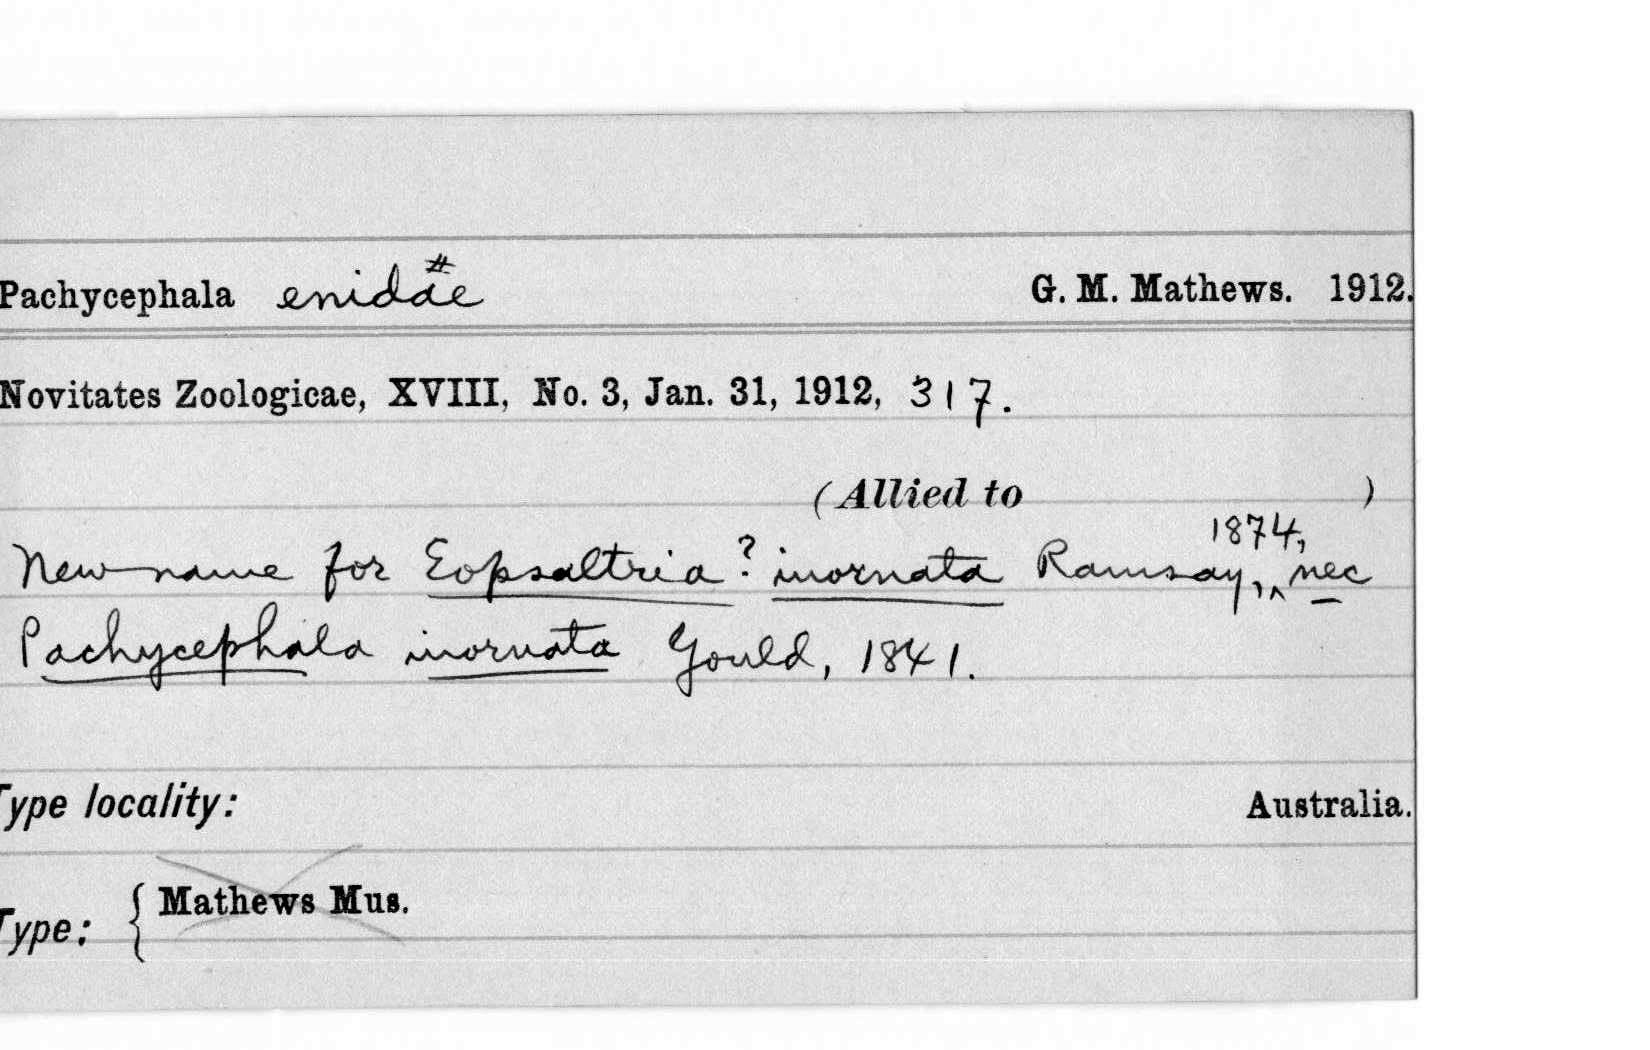 Pachycephala enidae # G. M. Mathews. 1912.
Novitates Zoologicae, XVIII, No. 3, Jan. 31, 1912, 317.
(Allied to )
New name for Eopsaltria? inornata Ramsay, ^ 1874, nec
Pachycephala inornata Gould, 1841.
Type locality: Australia.
Type: { Mathews Mus.